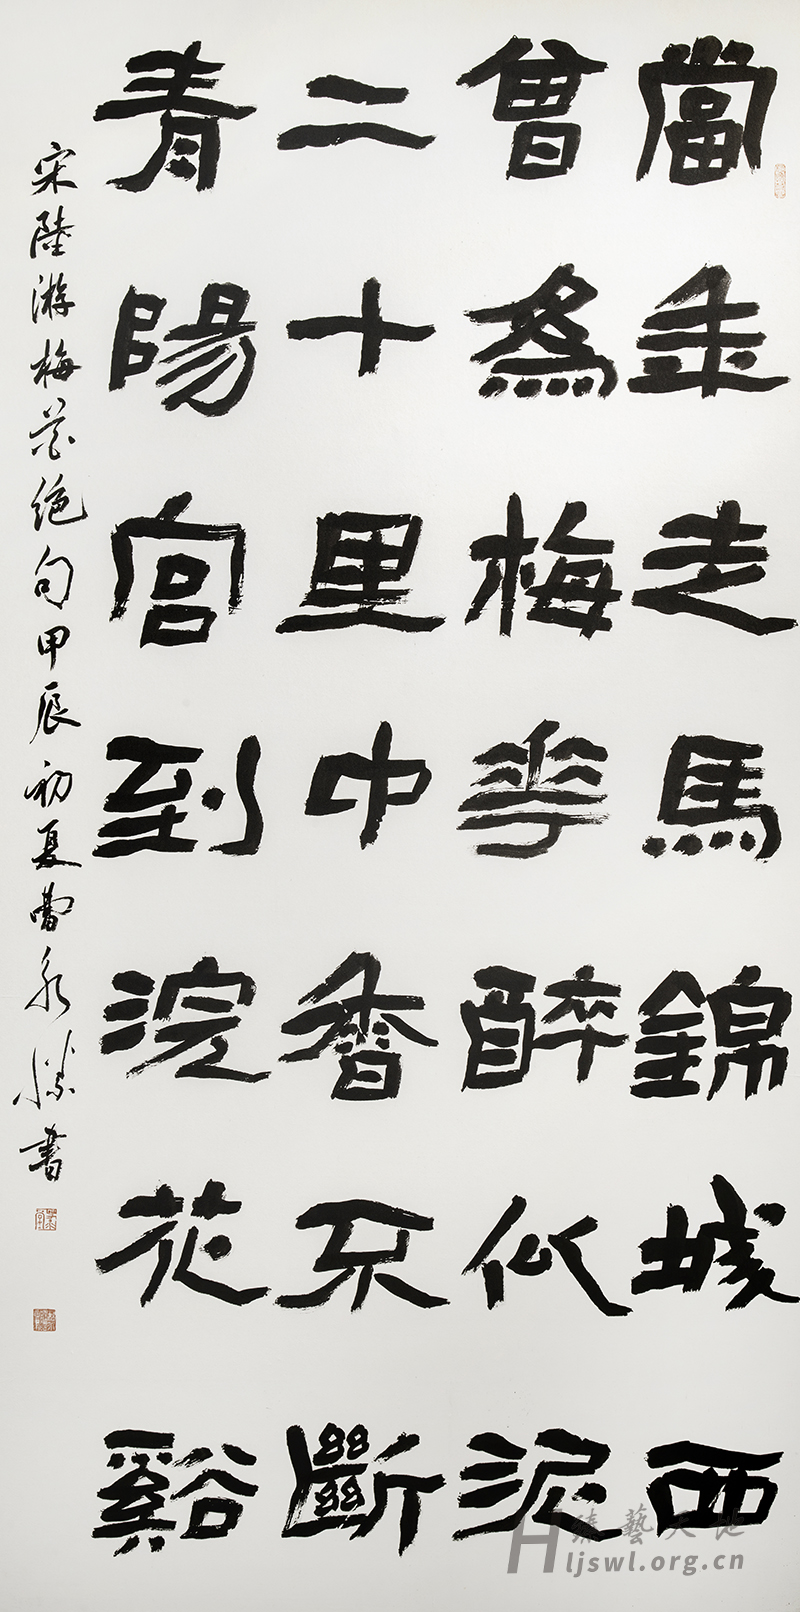 當年走馬錦城西
曾為梅華醉似泥
二十里中香不斷
青陽宮到浣花谿
宋陸游梅花絕句甲辰初夏曹永勝書
藝天地
Hljswl.org.cn